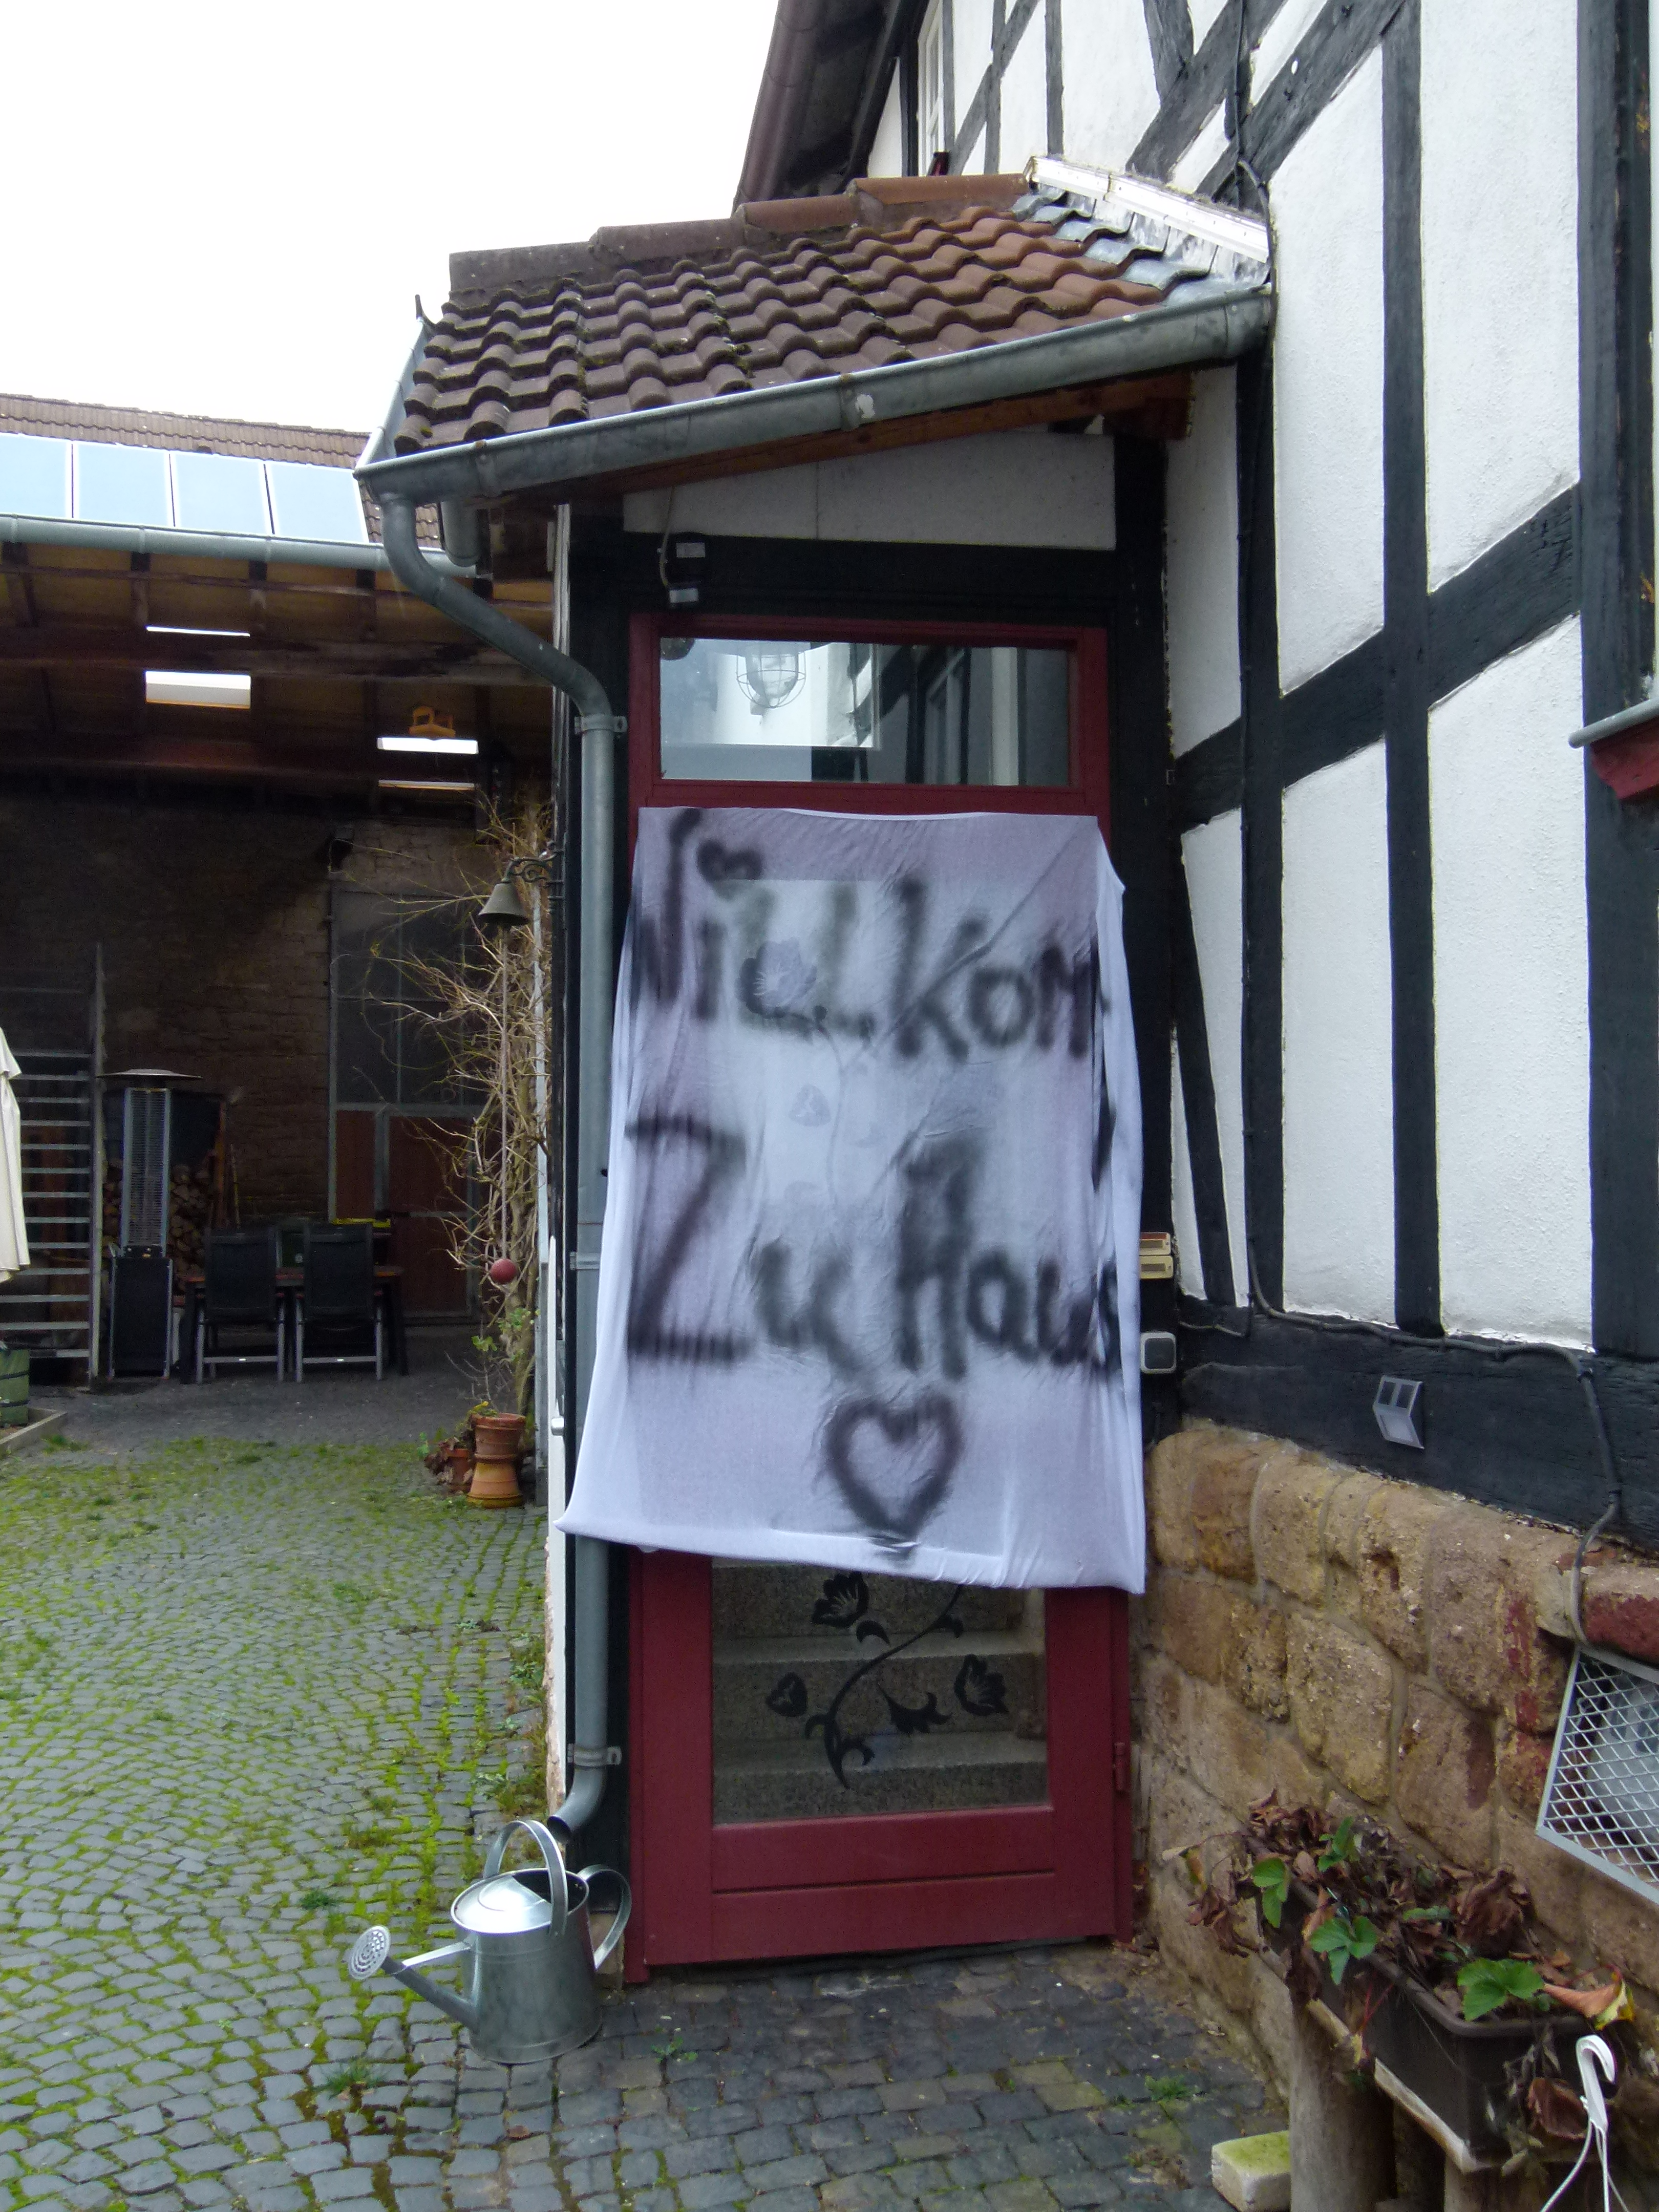 Willkom
Zu Haus